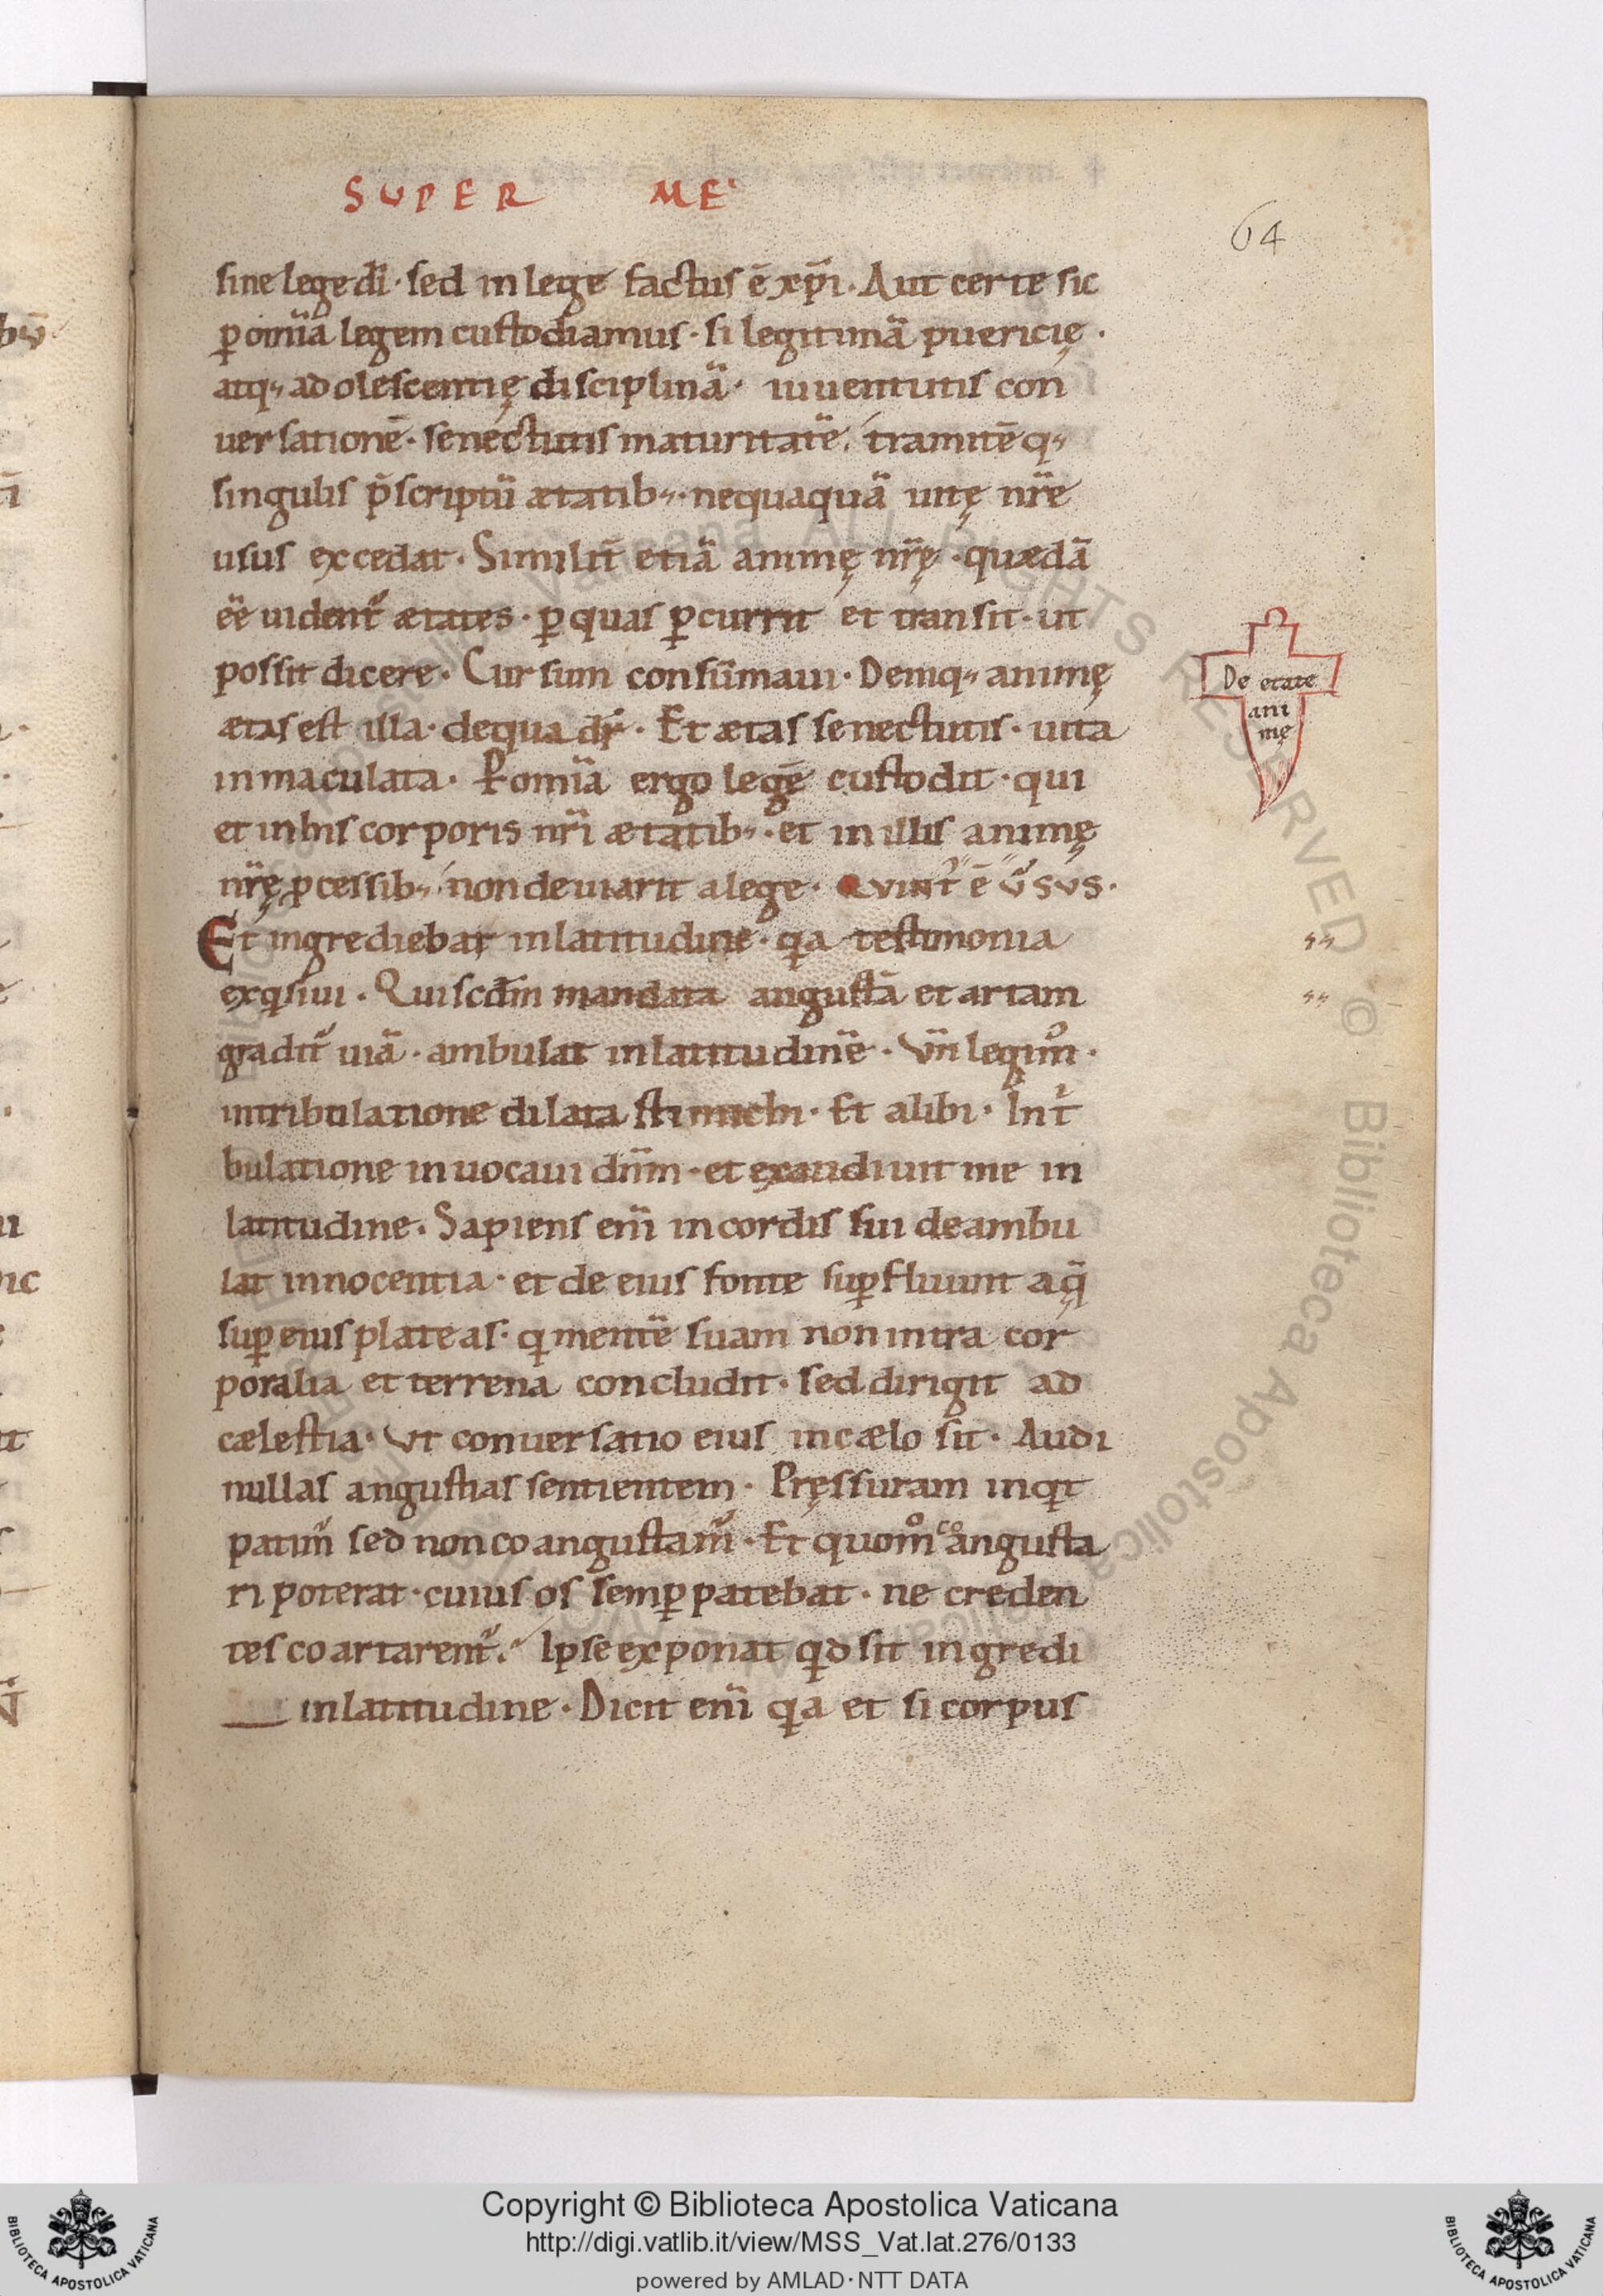 SUPER ME
64
sine lege dī · sed in lege factus ē xp̄i · Aut certe sic
ꝑ omīa legem custodiamus · si legitimā puericię ·
atq; adolescentię disciplinā · iuuentutis con
uersationē · senectutis maturitatē, tramitē q;
singulis p̄scriptū ætatib; · nequaquā uitę nr̄e
usus excedat · Similit̄ etiā animę nr̄ę · quædā
ēe uident᷑ ætates · ꝑ quas ꝑcurrit et transit · ut
possit dicere · Cursum consūmaui · Deniq; animę
ætas est illa · de qua dr̄ · Et ætas senectutis · uita
inmaculata · Ꝑ omīa ergo legē custodit · qui
et in his corporis nr̄i ætatib; · et in illis animę
nr̄ę ꝓcessib; non deuiarit a lege · Quint᷒ ē ūsus ·
Et ingrediebar in latitudine · qa testimonia
exqsiui · Quiscdm mandata angustā et artam
gradit᷑ uiā · ambulat in latitudinē · Vn̄ legim᷒ ·
in tribulatione dilatasti michi · Et alibi · In t̍
bulatione inuocaui dn̄m · et exaudiuit me in
latitudine · Sapiens eni̅ in cordis sui deambu
lat innocentia · et de eius fonte suꝑfluunt aq̄
suꝑ eius plateas · q mentē suam non intra cor
poralia et terrena concludit · sed dirigit ad
cælestia · Ut conuersatio eius in cælo sit · Audi
nullas angustias sentientem · Pręssuram inqt
patim᷑ sed non coangustam᷑ · Et quom̊ coangusta
ri poterat · cuius os semꝑ patebat · ne creden
tes coartarent᷑. Ipse exponat qd sit ingredi
in latitudine · Dicit eni̅ qa et si corpus
De etate
ani
mę
Copyright © Biblioteca Apostolica Vaticana
http://digi.vatlib.it/view/MSS_Vat.lat.276/0133
powered by AMLAD·NTT DATA
BIBLIOTECA APOSTOLICA VATICANA
BIBLIOTECA APOSTOLICA VATICANA